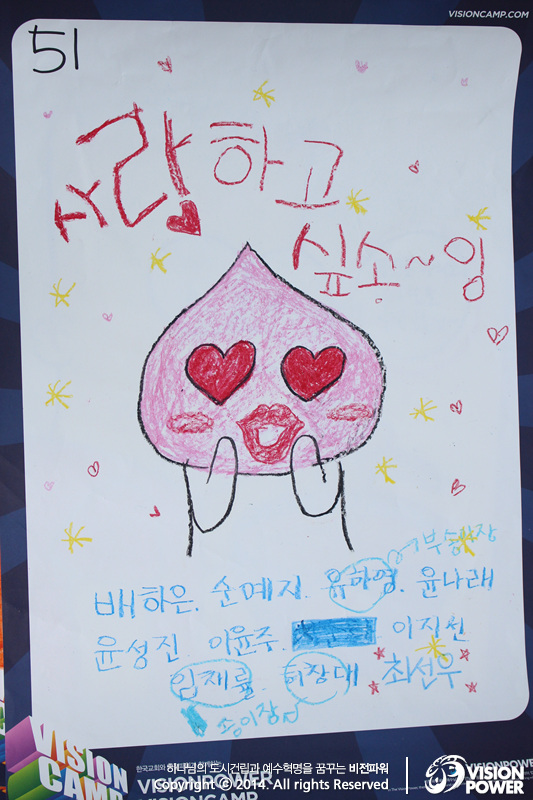 VISIONCAMP.COM
51
사랑하고
싶송~잉
부송이장
배하은. 손예지. 유하영. 윤나래
윤성진. 이윤주. 이지선
임재률. 허창대 최선우
송이장
VISION CAMP
하나님의 도시건립과 예수혁명을 꿈꾸는 비전파워
copyright © 2014. All rights Reserved
VISION POWER